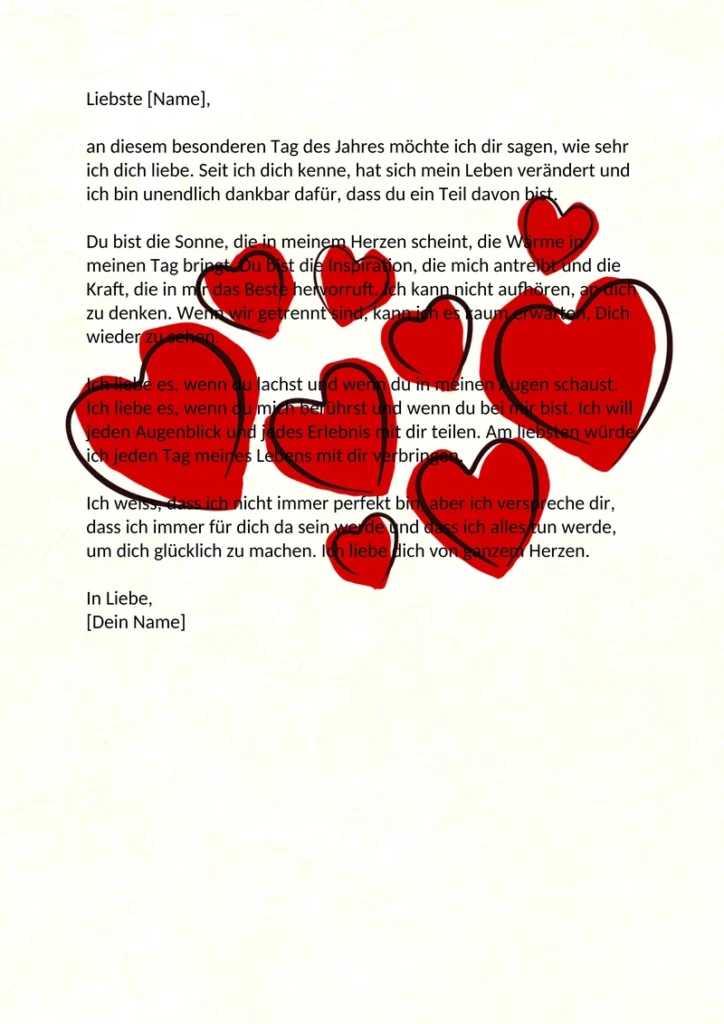 Liebste [Name],
an diesem besonderen Tag des Jahres möchte ich dir sagen, wie sehr
ich dich liebe. Seit ich dich kenne, hat sich mein Leben verändert und
ich bin unendlich dankbar dafür, dass du ein Teil davon bist.
Du bist die Sonne, die in meinem Herzen scheint, die Wärme in
meinen Tag bringt. Du bist die Inspiration, die mich antreibt und die
Kraft, die in mir das Beste hervorruft. Ich kann nicht aufhören, an dich
zu denken. Wenn wir getrennt sind, kann ich es kaum erwarten, Dich
wieder zu sehen.
Ich liebe es, wenn du lachst und wenn du in meinen Augen schaust.
Ich liebe es, wenn du mich berührst und wenn du bei mir bist. Ich will
jeden Augenblick und jedes Erlebnis mit dir teilen. Am liebsten würde
ich jeden Tag meines Lebens mit dir verbringen.
Ich weiss, dass ich nicht immer perfekt bin, aber ich verspreche dir,
dass ich immer für dich da sein werde und dass ich alles tun werde,
um dich glücklich zu machen. Ich liebe dich von ganzem Herzen.
In Liebe,
[Dein Name]